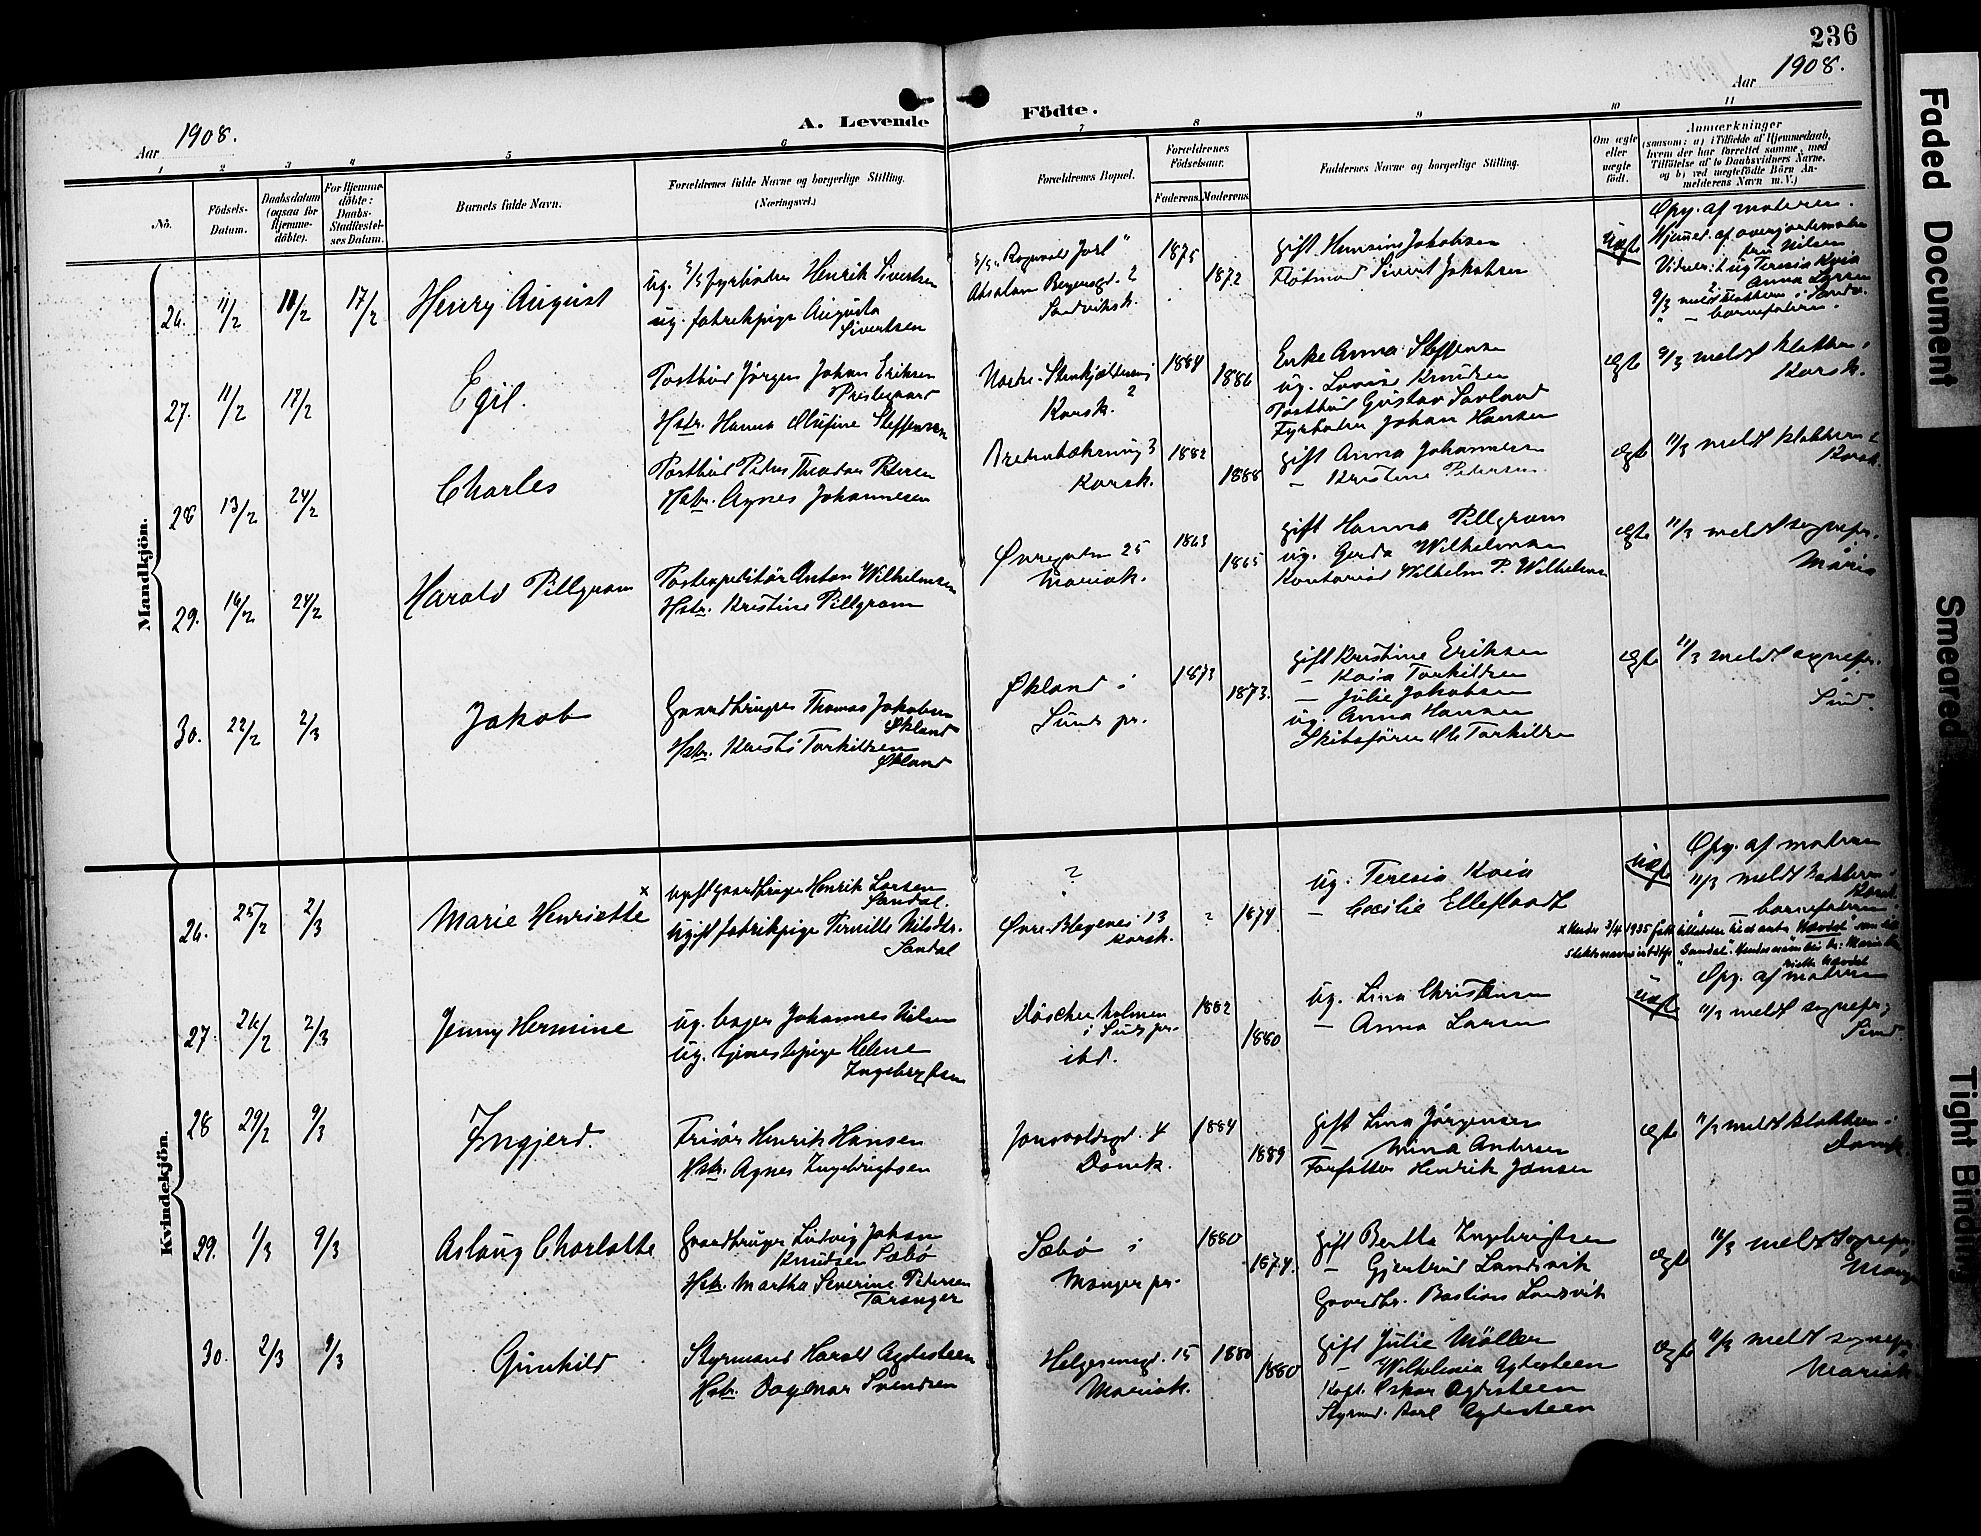 236
Aar 1908.
Aar 1908.
A. Levende Födte.
1 2 3 4 5 6 7 8 9 10 11
No.
Födsels-Datum.
Daabsdatum (ogsaa for Hjemme-döbte).
For Hjemme-döbte: Daabs-Stadfæstel-ses Datum.
Barnets fulde Navn.
Forældrenes fulde Navne og borgerlige Stilling.
(Næringsvei.)
Forældrenes Bopæl.
Forældrenes Födselsaar.
Faderens. Moderens.
Faddernes Navne og borgerlige Stilling.
Om ægte eller uægte födt.
Anmærkninger
(saasom: a) i Tilfælde af Hjemmedaab,
hvem der har forrettet samme, med
Tilföielse af to Daabsvidners Navne.
og b) ved uægtefödte Börn An-
melderens Navn m. V.)
Mandkjön.
26. 11/2 18/2 17/2
Henry August
ug. s/s fyrböder Henrik Sivertsen
ug. fabrikpige Augusta
Sivertsen
s/s "Ragnvald Jarl"
Absalon Beyersgt. 2
Sandviksk.
1875
1872
gift Hansine Jakobsen
Flotmand Sivert Jakobsen
uægte
Opg. af moderen.
Hjemmed. af overjordemoder
frøk. Nilsen
Vidner: 1 ug Teresia Kvia
2. Anna Larsen
9/3 meldt klokkeren i Sandv.
" — barnefaderen.
27. 11/2 17/2
Egil.
Postbud Jörgen Johan Eriksen
Prestegaard
Hstr. Hanna Olufine Steffensen
Korsk.
1884
1886
Enke Anna Steffensen
ug. Lovise Knudsen
Postbud Gustav Savland
Fyrböter Johan Hansen
ægte
9/3 meldt klokkeren i
Korsk.
28 13/2 24/2
Charles
Postbud Peder Theodor Petersen
Hstr. Agnes Johannesen
Korsk.
1882
1888
gift Anna Johannesen
— Kristine Petersen
ægte
11/3 meldt klokkeren i
Korsk.
29. 16/2 24/2
Harald Pillgram
Postexpeditör Anton Wilhelmsen
Hstr. Kristine Pillgram
Øvregaten 25
Mariak.
1863
1865
gift Hanna Pillgram
ug. Gerda Wilhelmsen
Kontorist Wilhelm P. Wilhelmsen
ægte
11/3 meldt sognepr.
Maria
30. 22/2 2/3
Jakob
Gaardbruger Thomas Jakobsen
Økland
Hstr. Kristi Torkildsen
Økland
Økland i
Sunds pr.
1873
1873.
gift Kristine Eriksen
— Kaia Torkildsen
— Julie Jakobsen
ug. Anna Hansen
Skibsförer Ole Torkildsen
ægte
11/3 meldt sognepr.
Sund.
Kvindekjön.
26. 25/2 2/3
Marie Henriette x
ugift gaardbruger Henrik Larsen
Sandal.
Ugift fabrikpige Pernille Nilsdtr.
Sandal
?
Øvre Blegevei 13
Korsk.
?
1874
ug. Teresia Kvia
— Cæcilie Elleflaadt
uægte
Opg. af moderen
11/3 meldt klokkeren i
Korsk.
" — barnefaderen
27. 26/2 2/3
Jenny Hermine
ug. bager Johannes Nilsen
ug. tjenestepige Helene
Ingebrigtsen
Döscherholmen
i Sunds pr.
ibd.
1882
1880
ug. Lina Christensen
— Anna Larsen
uægte
Opg. af moderen
11/3 meldt sognepr. i
Sund.
28 29/2 9/3
Ingjerd.
Frisör Henrik Hansen
Hstr. Agnes Ingebrigtsen
Jonsvoldsgd. 4
Domk.
1884
1889
gift Lina Jörgensen
— Mina Andersen
Forfatter Henrik Jansen
ægte
11/3 meldt klokkeren i
Domk.
29. 1/3 9/3
Aslaug Charlotte
Gaardbruger Ludvig Johan
Knudsen Sæbö
Hstr. Martha Severine Pedersen
Taranger
Sæbö i
Manger pr.
1880
1874.
gift Bertha Ingebrigtsen
— Gjertrud Landsvik
Gaardbr. Bastian Landsvik
ægte
11/3 meldt sognepr. i
Manger
30. 2/3 9/3
Gunhild
Styrmand Harald Agdesteen
Hstr. Dagmar Svendsen
Helgesensgd. 15
Mariak.
1880
1880
gift Julie Möller
— Wilhelmia Agdesteen
Kapt. Oskar Agdesteen
Styrmd. Karl Agdesteen
ægte
11/3 meldt sognepr.
Mariak.
Faded Document
Smeared
Tight Binding